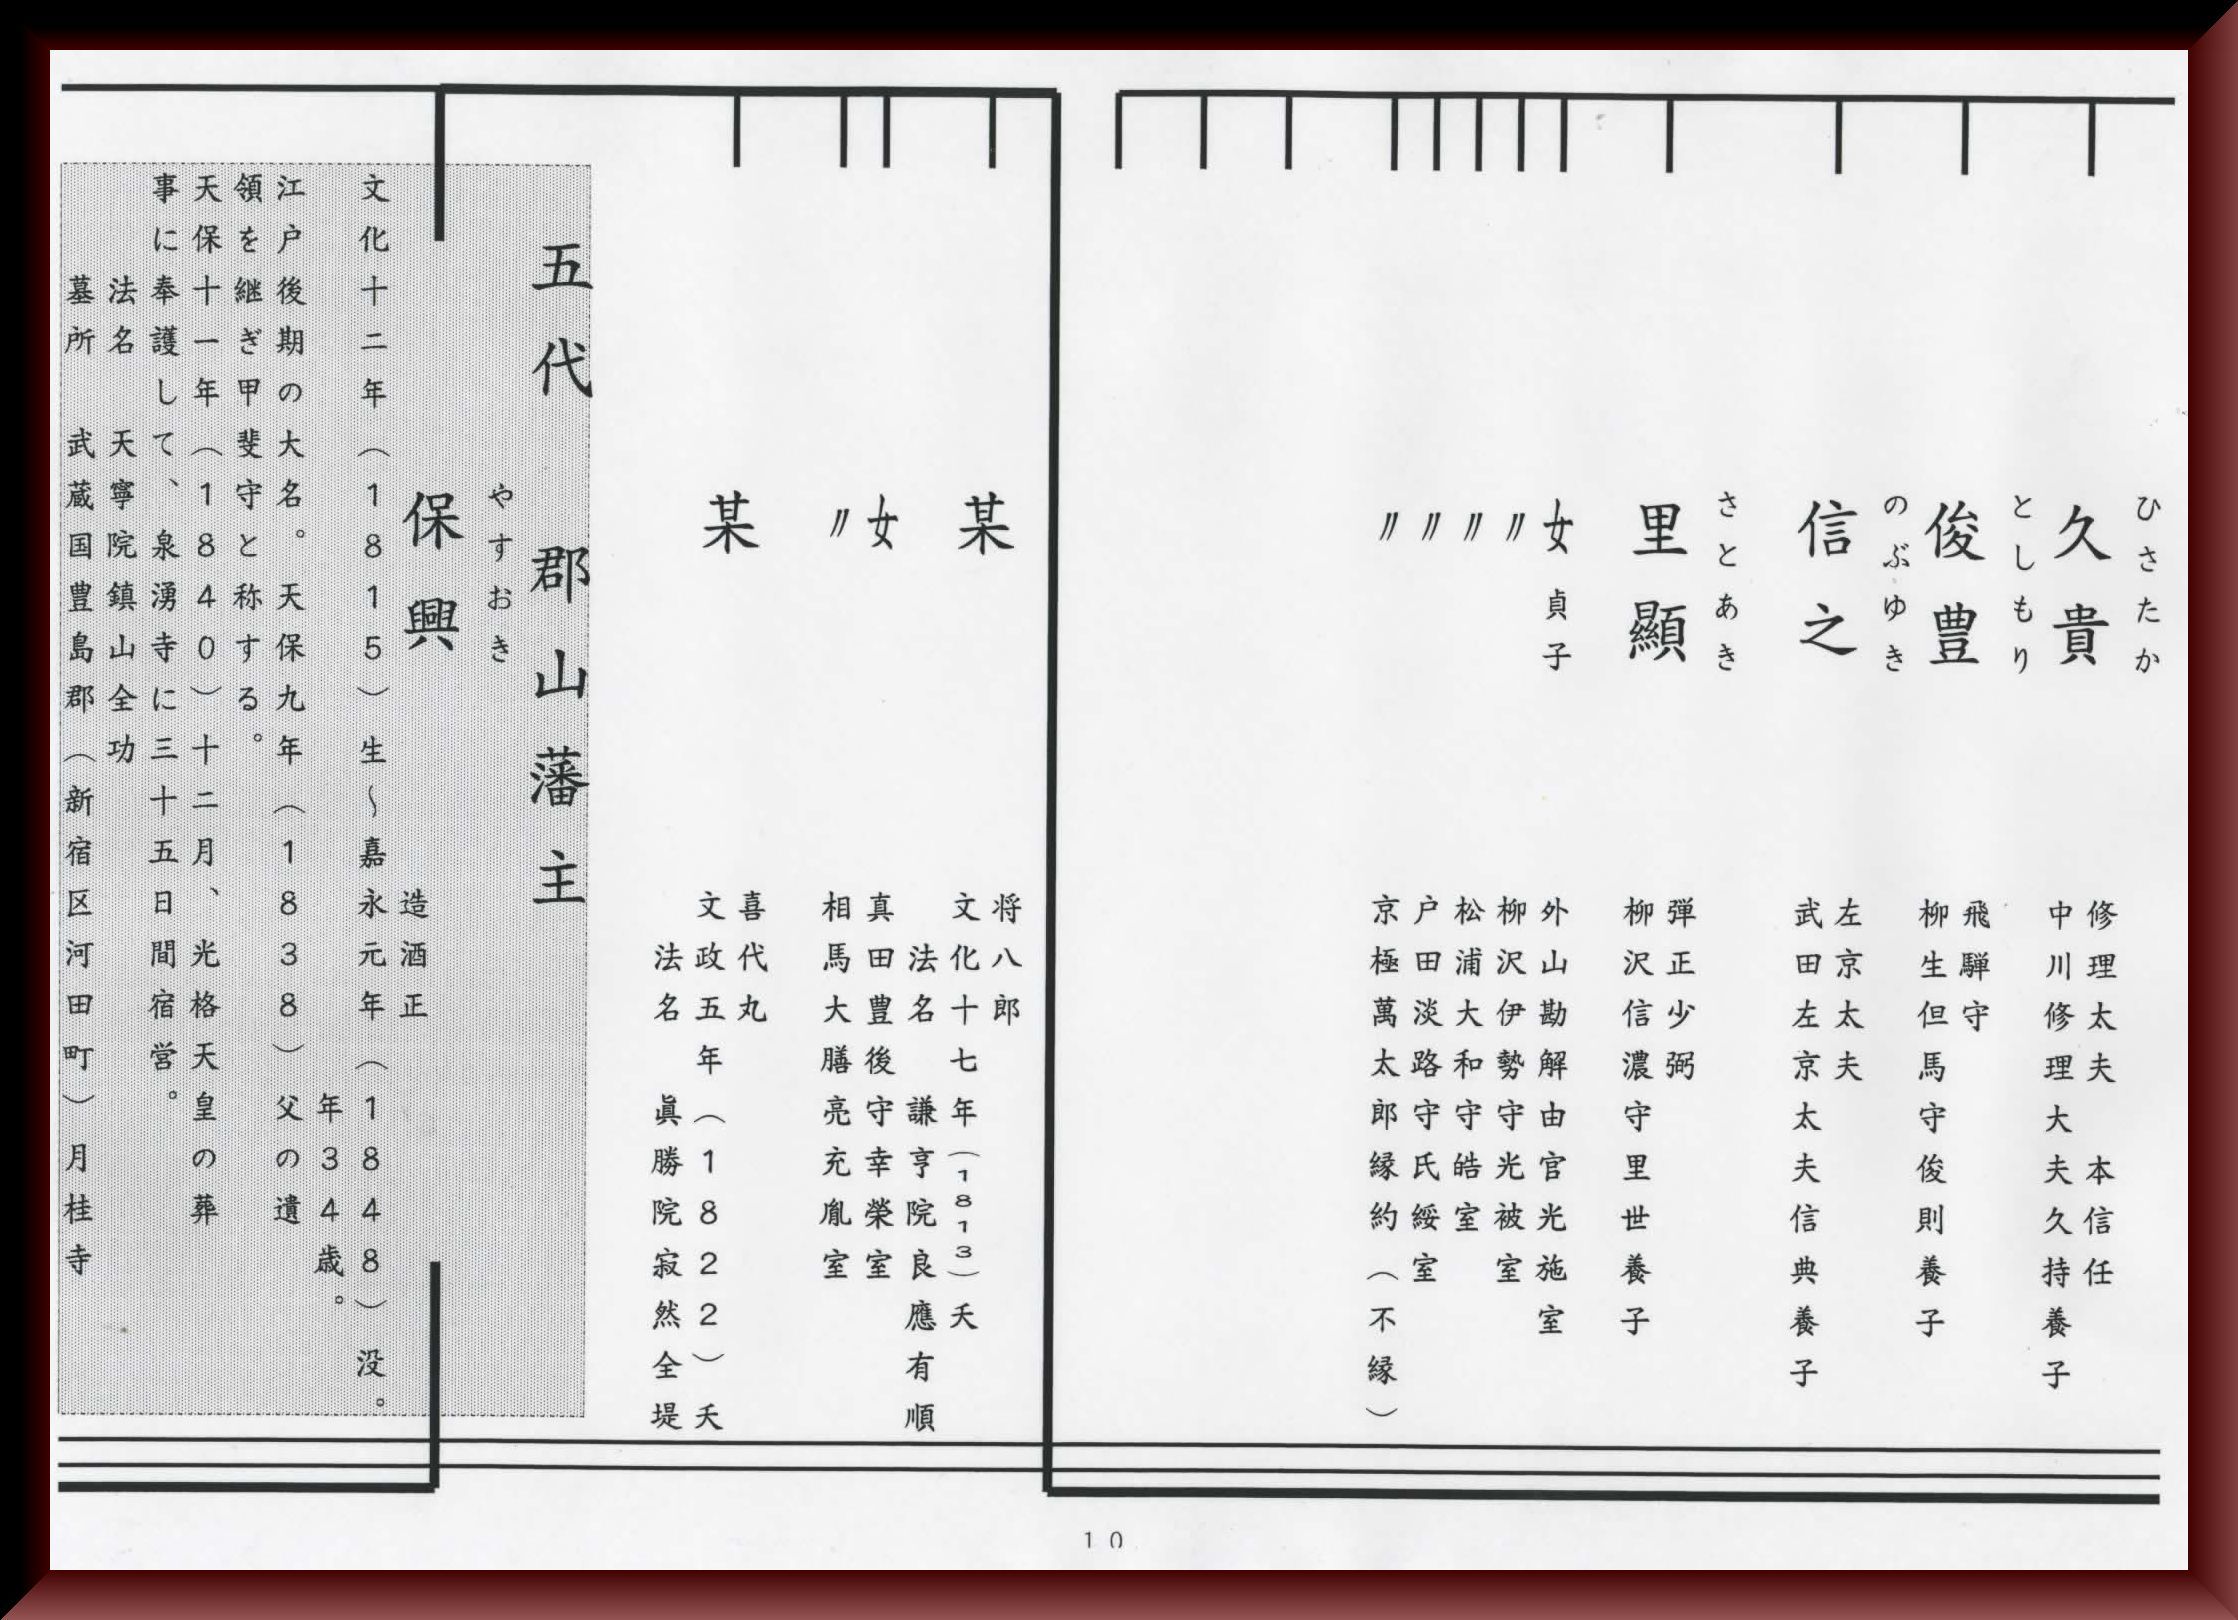 ひさたか
久貴
修理太夫　本信任
中川修理大夫久持養子
としもり
俊豊
飛騨守
柳生但馬守俊則養子
のぶゆき
信之
左京太夫
武田左京太夫信典養子
さとあき
里顯
弾正少弼
柳沢信濃守里世養子
女　貞子
外山勘解由官光施室
〃
柳沢伊勢守光被室
〃
松浦大和守皓室
〃
戸田淡路守氏綏室
〃
京極萬太郎縁約（不縁）
某
将八郎
文化十七年（1813）夭
法名　謙亨院良應有順
女
真田豊後守幸榮室
〃
相馬大膳亮充胤室
某
喜代丸
文政五年（1822）夭
法名　眞勝院寂然全堤
五代　郡山藩主
やすおき
保興
造酒正
文化十二年（1815）生～嘉永元年（1848）没。
年34歳。
江戸後期の大名。天保九年（1838）父の遺
領を継ぎ甲斐守と称する。
天保十一年（1840）十二月、光格天皇の葬
事に奉護して、泉湧寺に三十五日間宿営。
法名　天寧院鎮山全功
墓所　武蔵国豊島郡（新宿区河田町）月桂寺
10